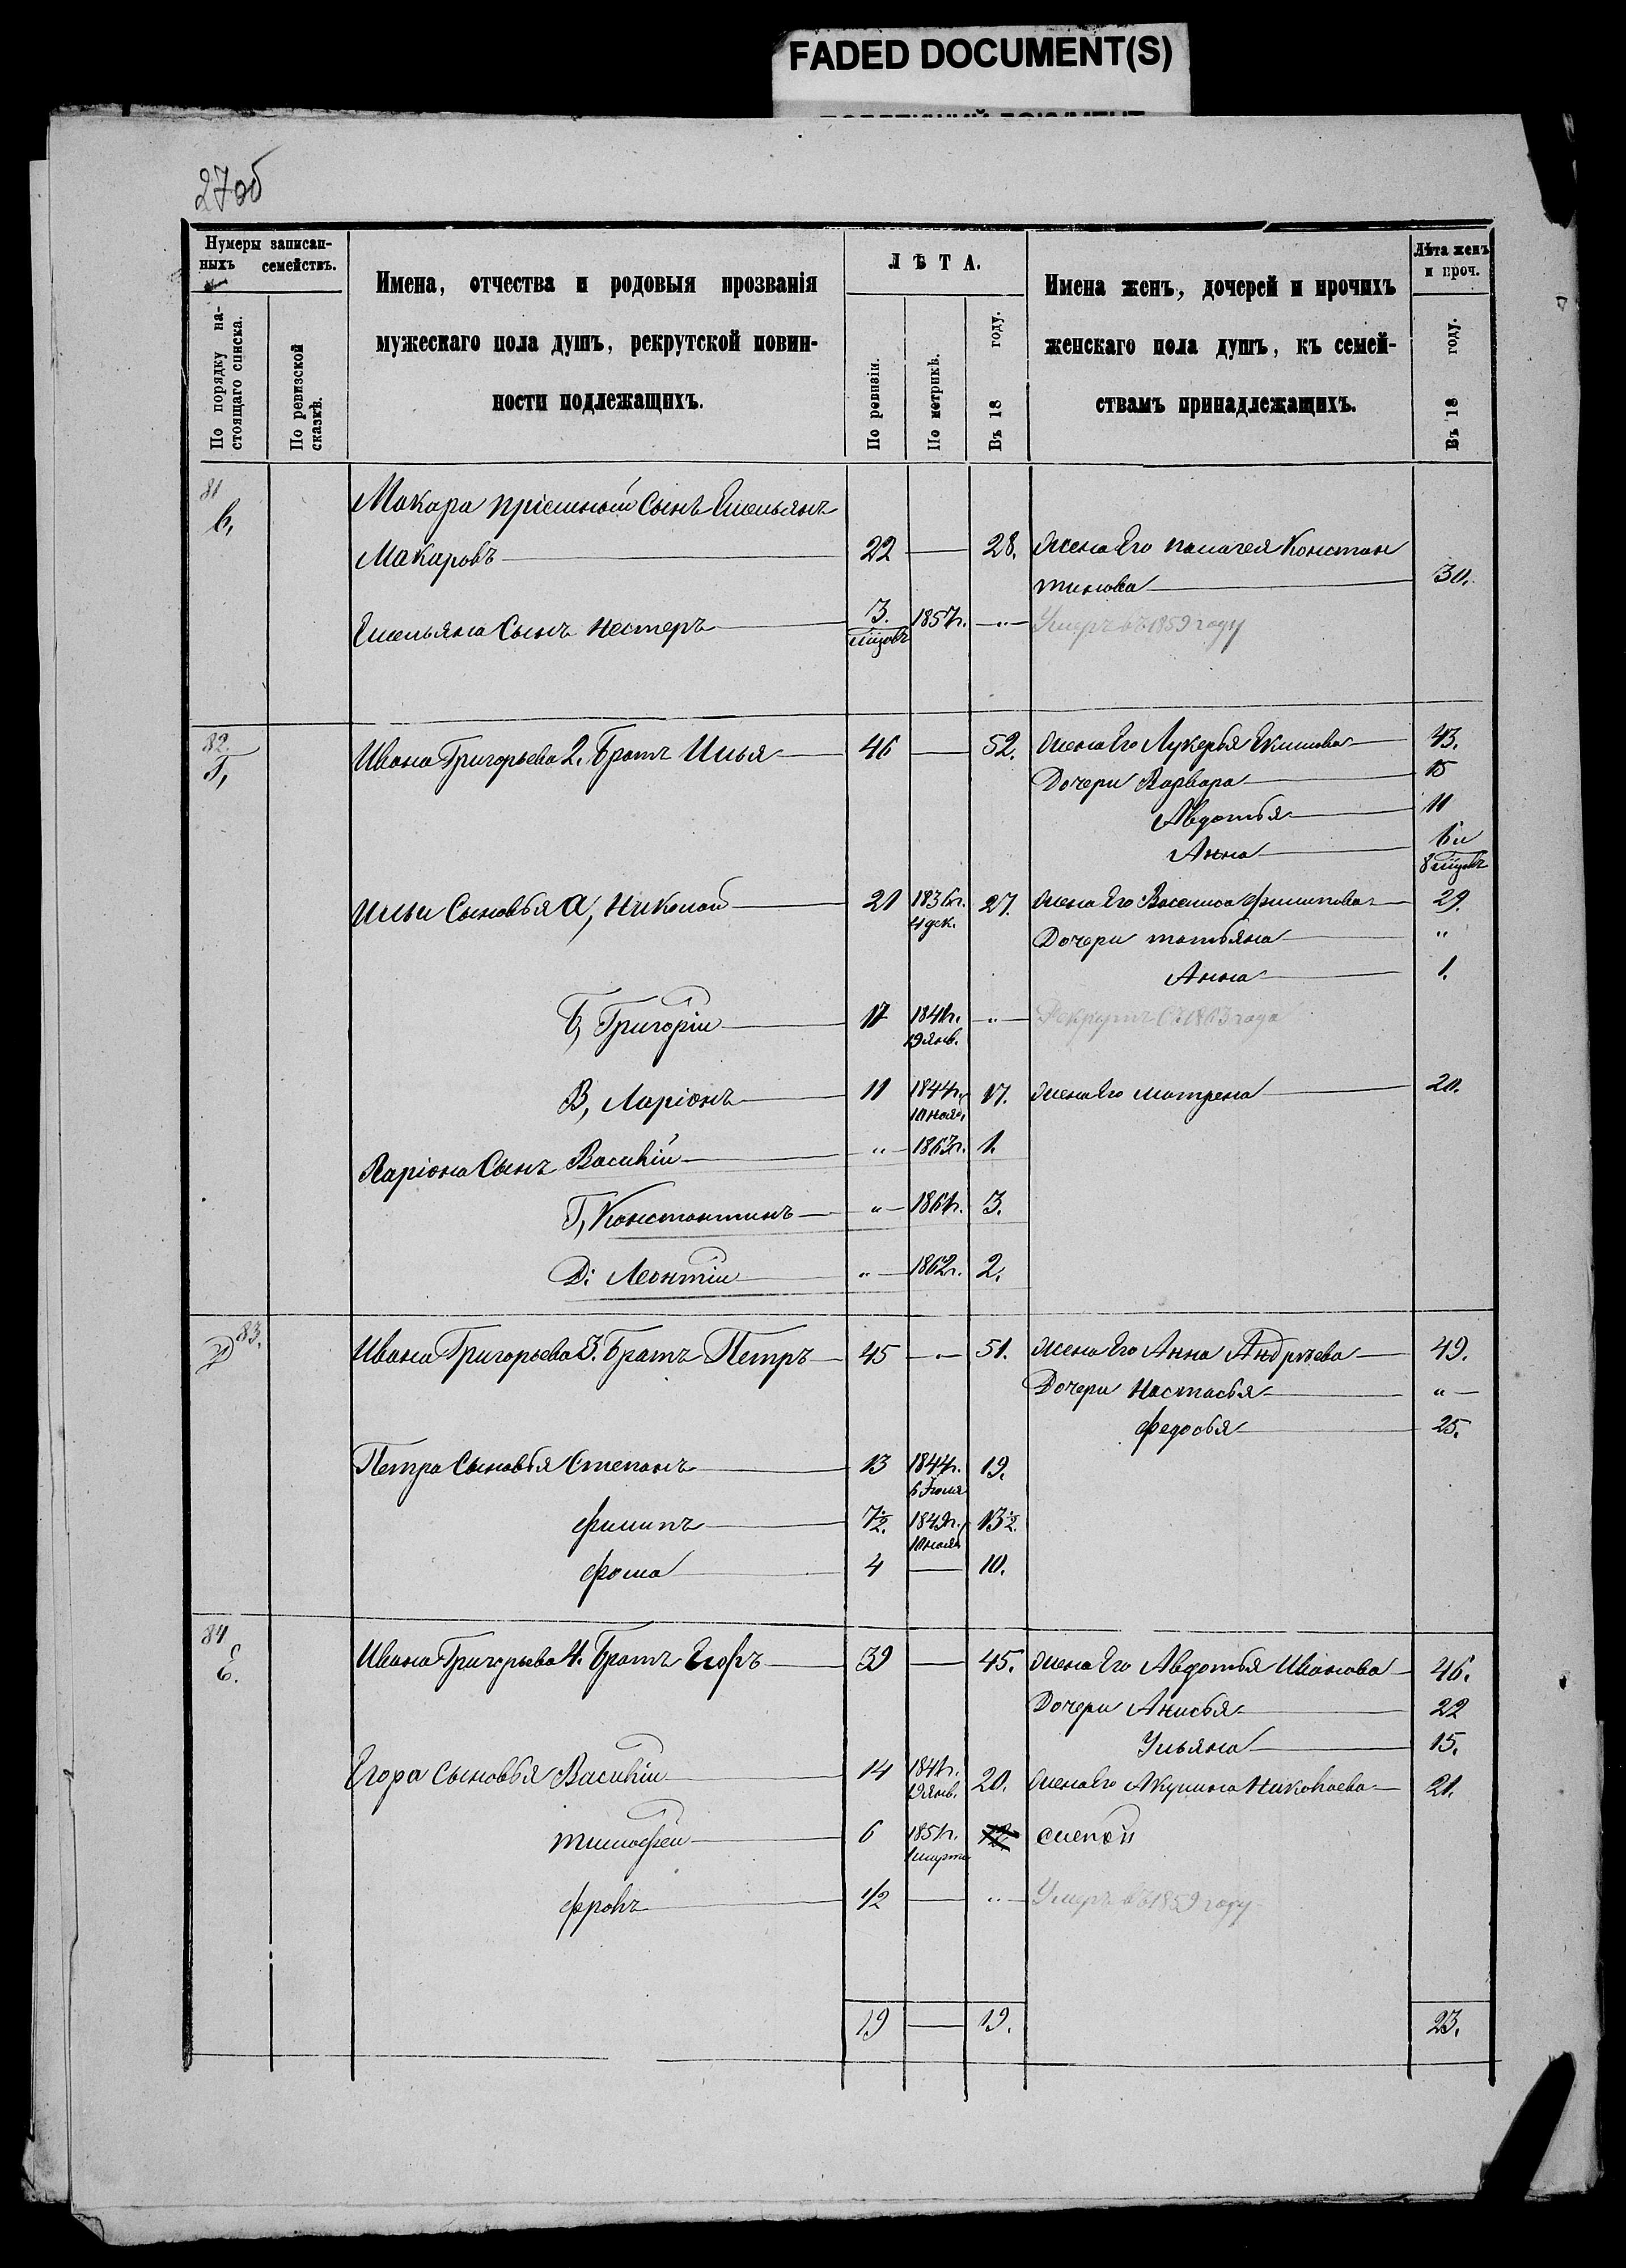 FADED DOCUMENT(S)
27об
Нумеры записан-
ныхъ семействъ.
По порядку на-
стоящаго списка.
По ревизской
сказкѣ.
Имена, отчества и родовыя прозванія
мужескаго пола душъ, рекрутской повин-
ности подлежащихъ.
ЛѢТА.
По ревизіи.
По метрикѣ.
Въ 18 году.
Имена женъ, дочерей и прочихъ
женскаго пола душъ, къ семей-
ствамъ принадлежащихъ.
Лѣта женъ
и проч.
Въ 18 году.
81
в, Макара пріемный Сынъ Емельянъ
Макаровъ 22 — 28. Жена Его палагея Констан
тинова 30.
Емельяна Сынъ Нестеръ 3. мцовъ 1857г. — " — Умеръ въ 1859 году
82.
Г, Ивана Григорьева 2. Братъ Илья 46 — 52. Жена Его Лукерья Екимова 43.
Дочери Варвара 15
Авдотья 11
Анна 6 и
8 мцовъ
Ильи Сыновья а, Николай 21 1836г. 4 дек. 27. Жена Его Василиса Филипова 29.
Дочери татьяна "
Анна 1.
Б, Григорій 17 1841г. 19 янв. " — Рекрутъ съ 1863 года
В, Ларіонъ 11 1844г. 10 нояб. 17. Жена Его матрена 20.
Ларіона Сынъ Василій " 1863г. 1.
Г, Константинъ " 1861г. 3.
Д: Леонтій " 1862г. 2.
83.
Д Ивана Григорьева 3. Братъ Петръ 45 — 51. Жена Его Анна Андреева 49.
Дочери Настасья " —
Федосья 25.
Петра Сыновья Степанъ 13 1844г. 6 Іюля 19.
Филипъ 7½. 1849г. 10 нояб. 13½.
Фома 4 — 10.
84
Е. Ивана Григорьева 4. Братъ Егоръ 39 — 45. Жена Его Авдотья Иванова 46.
Дочери Анисья 22
Ульяна 15.
Егора сыновья Василій 14 1841г. 19 янв. 20. Жена Его Акулина Николаева 21.
тимофей 6 1851г. 1 марта 12. слепой
Фролъ 1/2 — " — Умеръ въ 1859 году
19 — 19. 23.